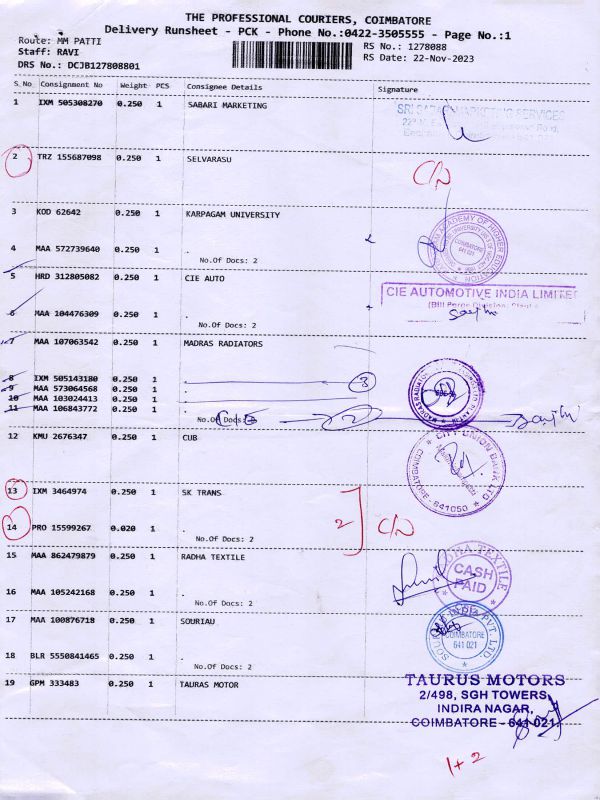 THE PROFESSIONAL COURIERS, COIMBATORE
Delivery Runsheet - PCK - Phone No.:0422-3505555 - Page No.:1
Route: MM PATTI
RS No.: 1278088
Staff: RAVI
RS Date: 22-Nov-2023
DRS No.: DCJB127808801
S.No Consignment No Weight PCS Consignee Details Signature
1 IXM 505308270 0.250 1 SABARI MARKETING
2 TRZ 155687098 0.250 1 SELVARASU
3 KOD 62642 0.250 1 KARPAGAM UNIVERSITY
COIMBATORE
641 021
4 MAA 572739640 0.250 1 .
No.Of Docs: 2
5 HRD 312805082 0.250 1 CIE AUTO
CIE AUTOMOTIVE INDIA LIMITED
6 MAA 104476309 0.250 1 .
No.Of Docs: 2
7 MAA 107063542 0.250 1 MADRAS RADIATORS
8 IXM 505143180 0.250 1 . 3
9 MAA 573064568 0.250 1 .
10 MAA 103024413 0.250 1 .
11 MAA 106843772 0.250 1 .
No.Of Docs: 2
12 KMU 2676347 0.250 1 CUB
CITY UNION BANK LTD
COIMBATORE - 641050
13 IXM 3464974 0.250 1 SK TRANS
2
14 PRO 15599267 0.020 1 .
No.Of Docs: 2
15 MAA 862479879 0.250 1 RADHA TEXTILE
RADHA TEXTILE
CASH
PAID
16 MAA 105242168 0.250 1 .
No.Of Docs: 2
17 MAA 100876718 0.250 1 SOURIAU
COIMBATORE
641 021
18 BLR 5550841465 0.250 1 .
No.Of Docs: 2
19 GPM 333483 0.250 1 TAURAS MOTOR
TAURUS MOTORS
2/498, SGH TOWERS,
INDIRA NAGAR,
COIMBATORE - 641 021.
1+2